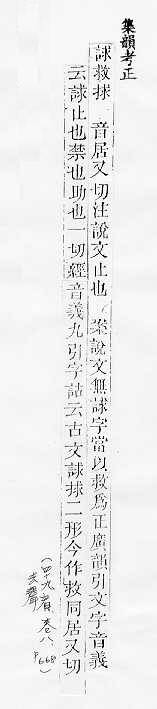 集韻考正
䛮救捄 音居又切注說文止也 案說文無䛮字當以救為正廣韻引文字音義
云䛮止也禁也助也一切經音義九引字詁云古文䛮捄二形今作救同居又切
(四十九宥,卷八,
去聲 P668)